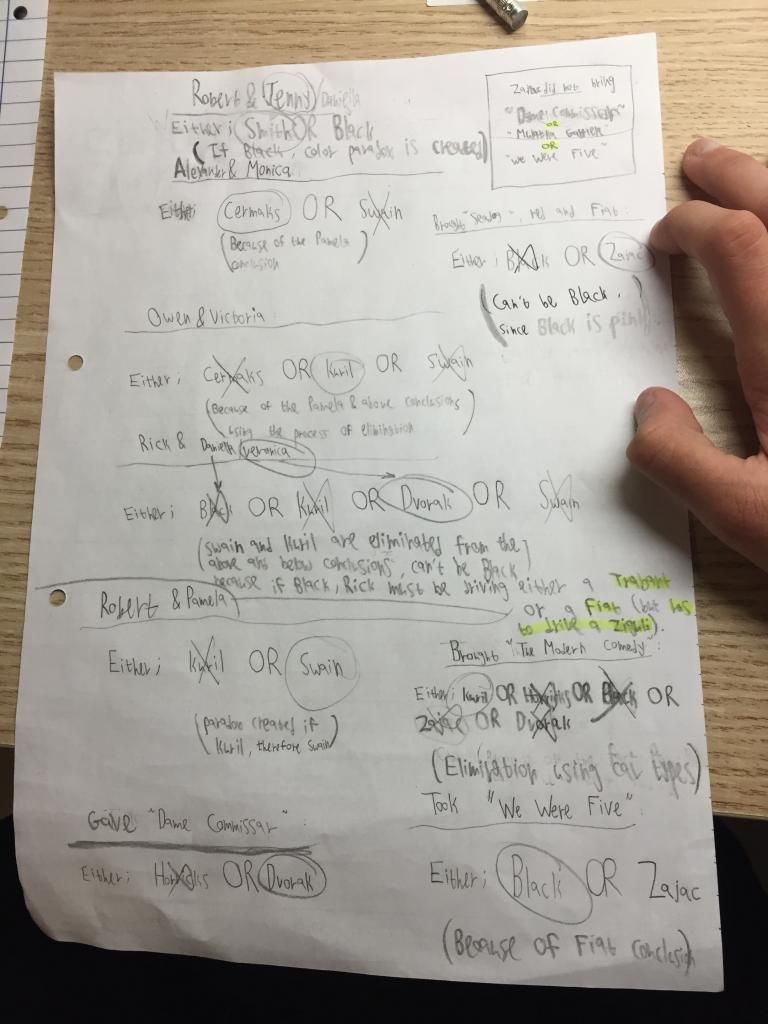 Robert & Jenny Daniella
Either; Smith OR Black
(If Black, color paradox is created)
Alexander & Monica
Either; Cermaks OR Swain
(Because of the Pamela
conclusion)
Zajac did not bring
"Dame Commissar"
OR
OR
"We Were Five"
Brought "Seadog", red and Fiat:
Either; Black OR Zajac
(Can't be Black,
since Black is pink)
Owen & Victoria
Either; Cermaks OR Kuril OR Swain
(Because of the Pamela & above conclusions
using the process of elimination)
Rick & Daniella Veronica
Either; Black OR Kuril OR Dvorak OR Swain
(Swain and Kuril are eliminated from the
above and below conclusions, can't be Black
because if Black, Rick must be driving either a Trabant
or a Fiat (but has
to drive a Ziguli).
Robert & Pamela
Either; Kuril OR Swain
(paradox created if
Kuril, therefore Swain)
Brought "The Modern Comedy":
Either; Kuril OR Horaks OR Black OR
Zajac OR Dvorak
(Elimination using car types)
Gave "Dame Commissar":
Either; Horaks OR Dvorak
Took "We Were Five"
Either; Black OR Zajac
(Because of Fiat conclusion)